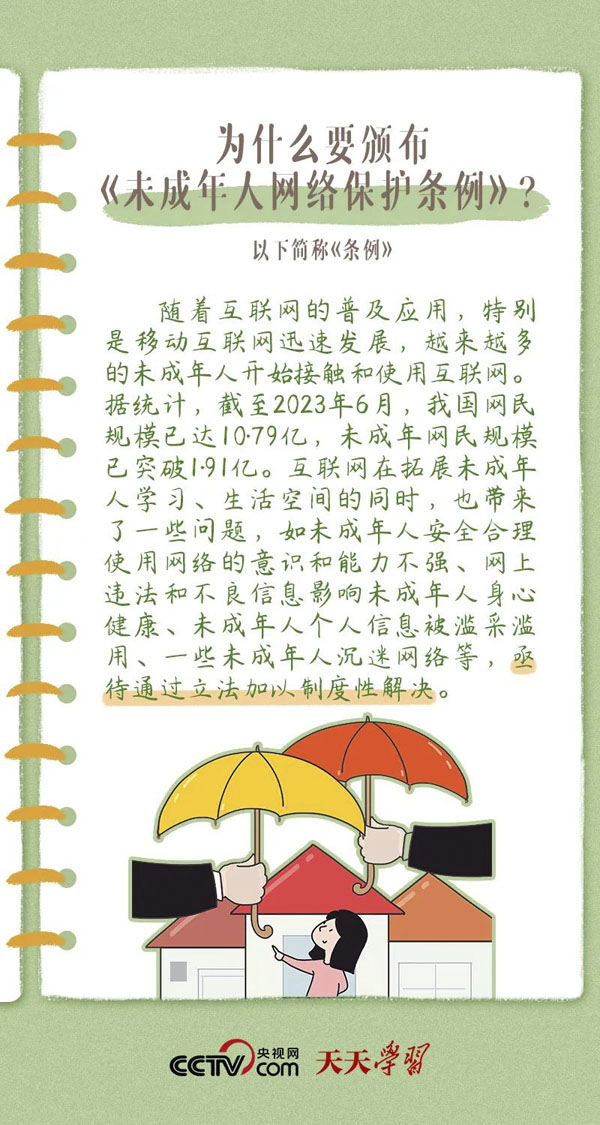 为什么要颁布
《未成年人网络保护条例》?
以下简称《条例》
随着互联网的普及应用，特别
是移动互联网迅速发展，越来越多
的未成年人开始接触和使用互联网。
据统计，截至2023年6月，我国网民
规模已达10.79亿，未成年网民规模
已突破1.91亿。互联网在拓展未成年
人学习、生活空间的同时，也带来
了一些问题，如未成年人安全合理
使用网络的意识和能力不强、网上
违法和不良信息影响未成年人身心
健康、未成年人个人信息被滥采滥
用、一些未成年人沉迷网络等，亟
待通过立法加以制度性解决。
CCTV 央视网 com 天天学習